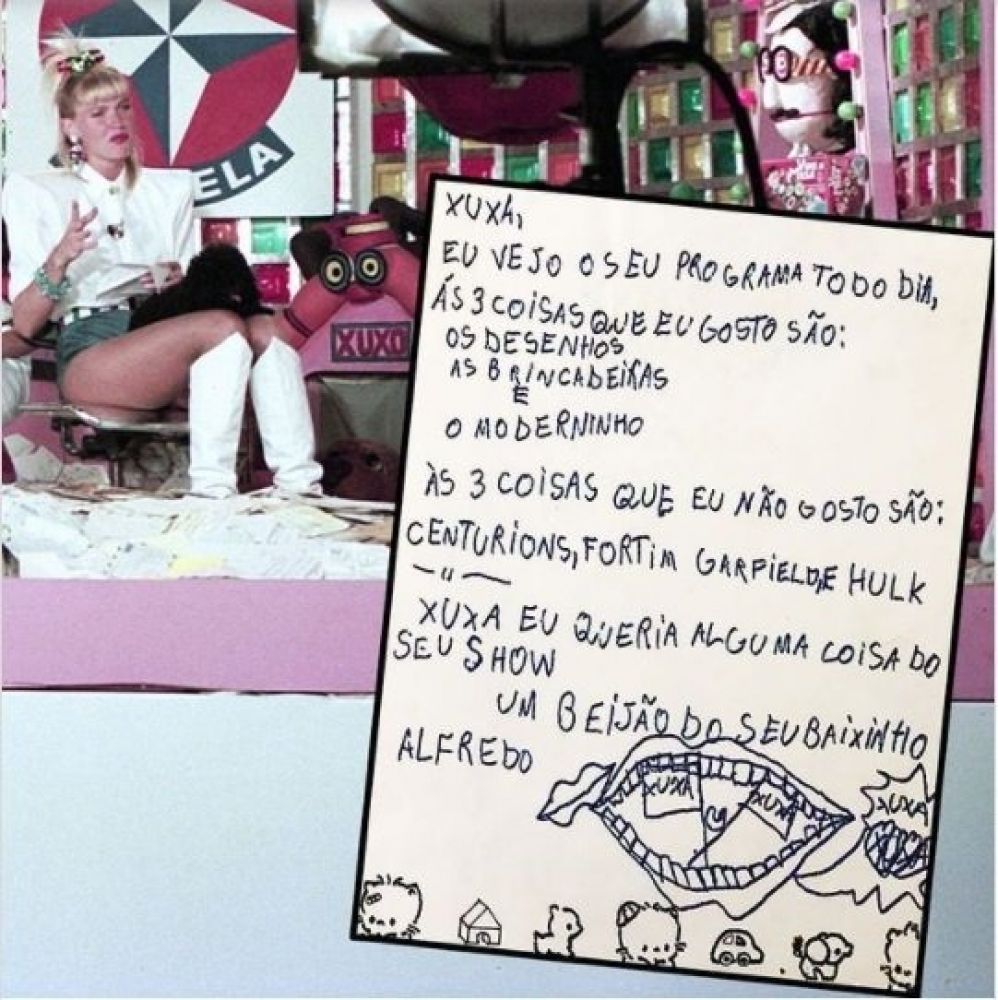 ELA
XUXO
XUXA,
EU VEJO O SEU PROGRAMA TODO DIA,
ÁS 3 COISAS QUE EU GOSTO SÃO:
OS DESENHOS
AS BRINCADEIRAS
E
O MODERNINHO
ÀS 3 COISAS QUE EU NÃO GOSTO SÃO:
CENTURIONS, FORTIM GARFIELD, E HULK
XUXA EU QUERIA ALGUMA COISA DO
SEU SHOW
UM BEIJÃO DO SEU BAIXINHO
ALFREDO
XUXA
XUXA
XUXA
XUXA